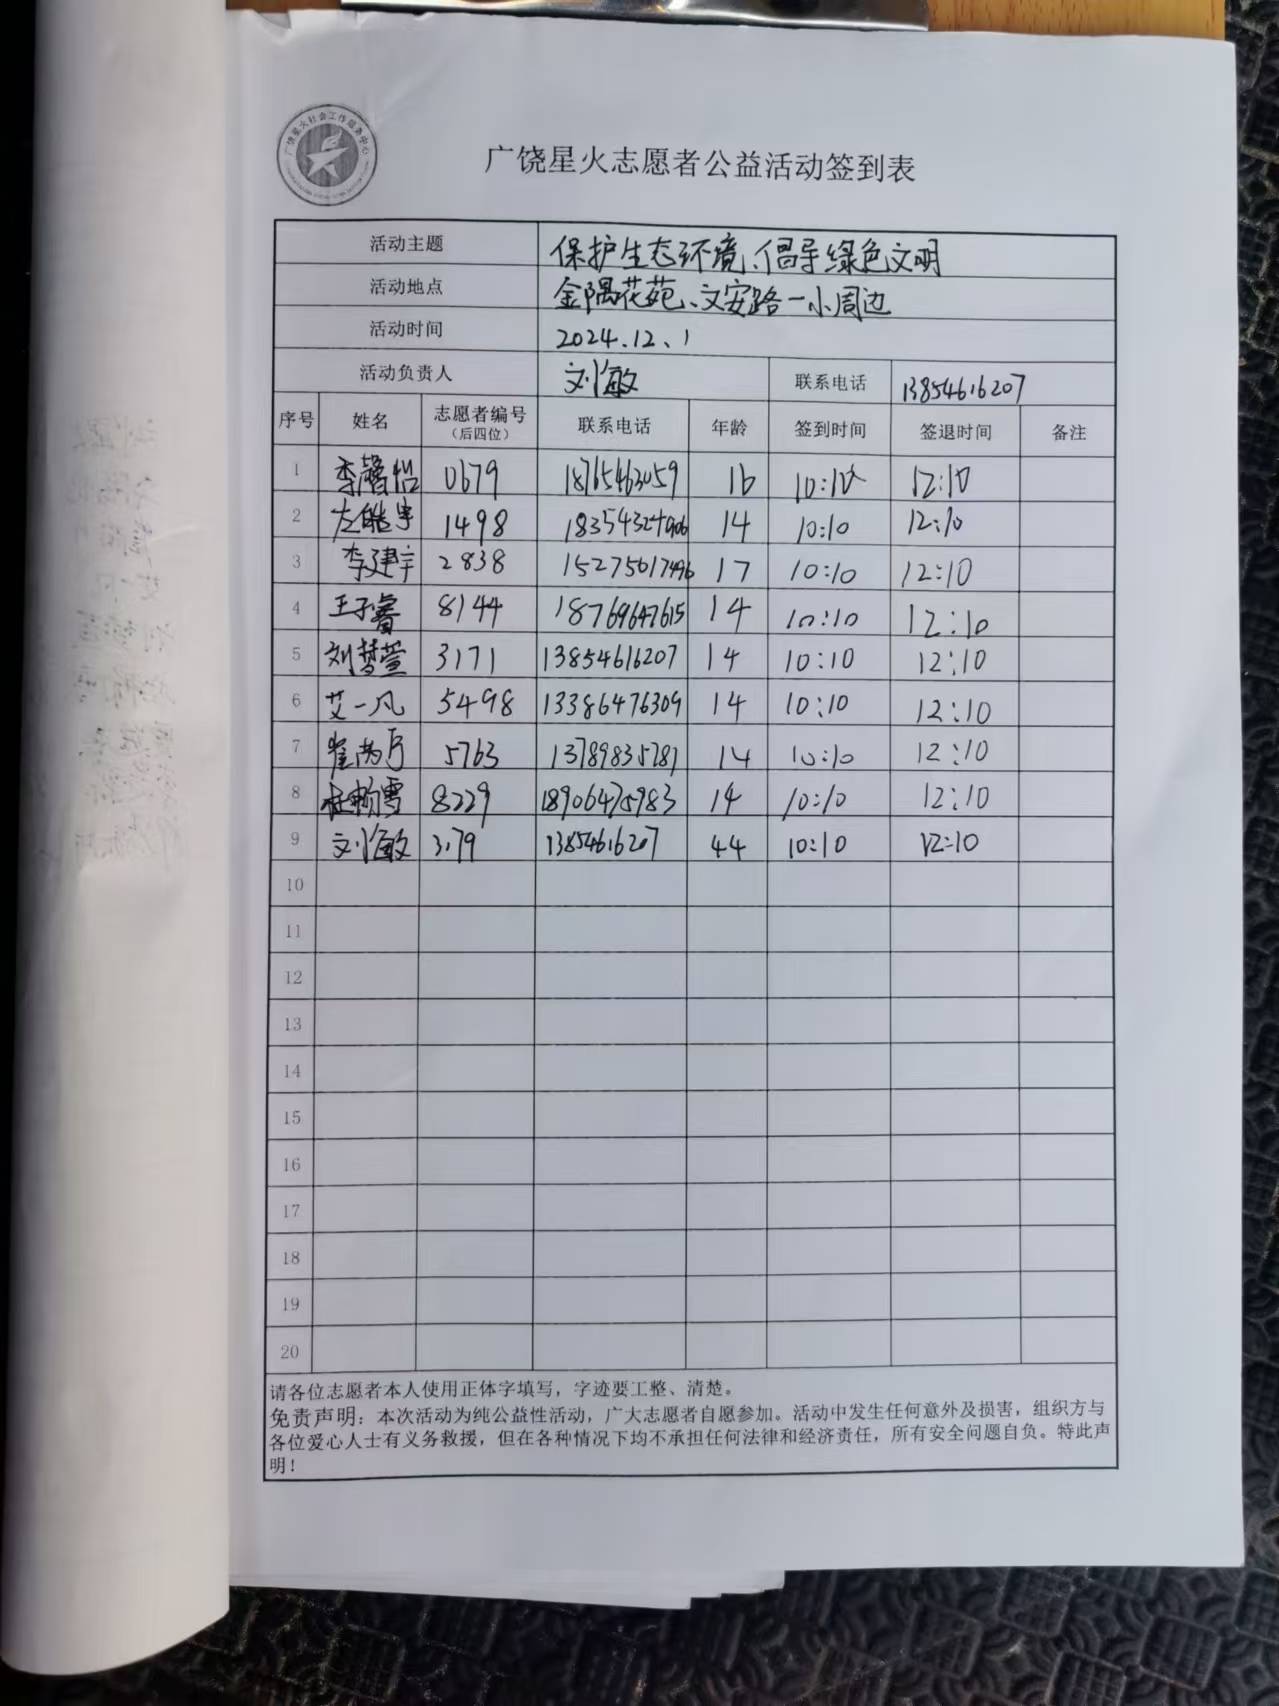 广饶星火社会工作服务中心
广饶星火志愿者公益活动签到表
活动主题 保护生态环境、倡导绿色文明
活动地点 金隅花苑、文安路一小周边
活动时间 2024.12.1
活动负责人 刘海敏 联系电话 13854616207
序号 姓名 志愿者编号(后四位) 联系电话 年龄 签到时间 签退时间 备注
1 李馨怡 0679 18765463059 16 10:10 12:10
2 左皓宇 1498 14 10:10 12:10
3 李建宇 2838 15275617496 17 10:10 12:10
4 王子睿 8144 18769647615 14 10:10 12:10
5 刘梦萱 3171 13854616207 14 10:10 12:10
6 艾一凡 5498 13386476309 14 10:10 12:10
7 5763 13789835781 14 10:10 12:10
8 8229 18906475983 14 10:10 12:10
9 刘海敏 3179 13854616207 44 10:10 12:10
10
11
12
13
14
15
16
17
18
19
20
请各位志愿者本人使用正体字填写，字迹要工整、清楚。
免责声明：本次活动为纯公益性活动，广大志愿者自愿参加。活动中发生任何意外及损害，组织方与
各位爱心人士有义务救援，但在各种情况下均不承担任何法律和经济责任，所有安全问题自负。特此声
明！